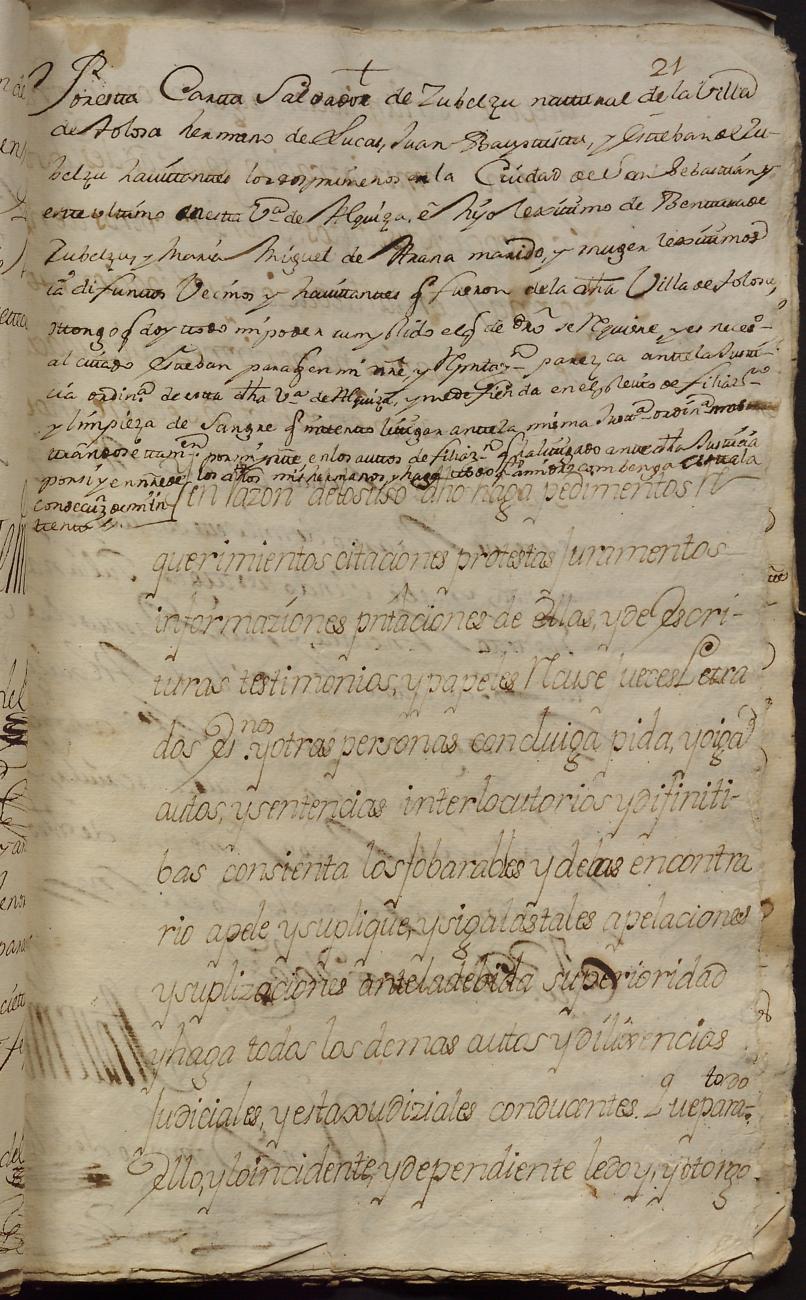 21
Por esta Carta Salbador de Zubelzu natural de la Villa
de Tolosa hermano de Lucas, Juan Bauptista, y Esteban de Zu-
belzu havitantes los dos primeros en la Ciudad de San Sebastian y
este ultimo en esta Va de Alquiza, e hijo lexitimo de Bentura de
Zubelzu, y Maria Miguel de Arana marido, y muger lexitimos
ia difuntos Vecinos y havitantes q fueron de la dha Villa de Tolosa,
otorgo q doy todo mi poder cumplido el q de dro se requiere, y es neces-o
al citado Esteban para q en mi nre, y Rpntazn parezca ante la Justi-
cia ordina de esta dha Va de Alquiza, y me defienda en el pleito de filiazn
y limpieza de Sangre q intento litigar ante la misma Justa ordina
por mi nre en los autos de filiazn q ha litigado ante dha Justicia
por si y en nre de los dhos mis hermanos, y haga todo q
consecuza de mi in-
tento
en razon de lo suso dho haga pedimentos R
querimientos citaciones protestas Juramentos
informaziones pntaciones de ellas, y de Escri-
turas testimonios, y papeles Rcuse Jueces Letra
dos Esnos y otras personas concluiga pida, y oiga
autos, y sentencias interlocutorias y difiniti-
bas consienta los fobarables y de las en contra
rio apele y suplique, y siga las tales apelaciones
y suplizaciones ante la debida superioridad
y haga todos los demas autos y dilixencias
Judiciales, y estraxudiziales conducentes. Que para todo
Ello, y lo incidente, y dependiente le doy, y otorgo